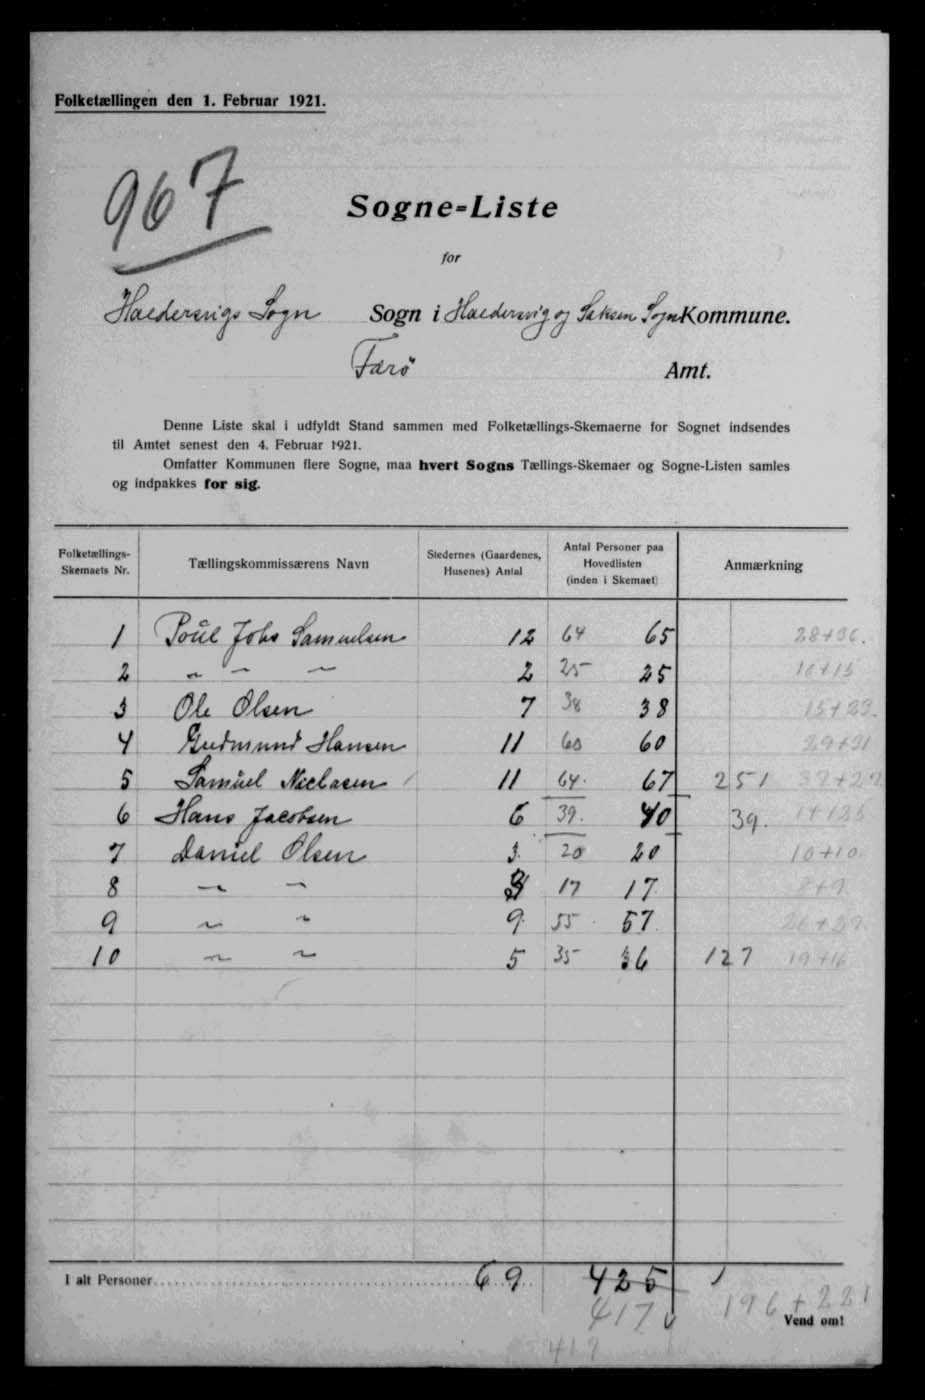 Folketællingen den 1. Februar 1921.
967
Sogne=Liste
for
Haldersvigs Sogn Sogn i Haldersvig og Saksen Sogn Kommune.
Færø Amt.
Denne Liste skal i udfyldt Stand sammen med Folketællings-Skemaerne for Sognet indsendes
til Amtet senest den 4. Februar 1921.
Omfatter Kommunen flere Sogne, maa hvert Sogns Tællings-Skemaer og Sogne-Listen samles
og indpakkes for sig.
Folketællings-Skemaets Nr. Tællingskommissærens Navn Stedernes (Gaardenes, Husenes) Antal Antal Personer paa Hovedlisten (inden i Skemaet) Anmærkning
1 Poül Johs Samuelsen 12 64 65 28+36.
2 " " " 2 25 25 10+15
3 Ole Olsen 7 38 38 15+23.
4 Gudmund Hansen 11 60 60 29+31
5 Samüel Niclasen 11 64. 67 251 37+27
6 Hans Jacobsen 6 39. 40 39. 14+25
7 Daniel Olsen 3. 20 20 10+10.
8 " " 3 17 17. 8+9.
9 " " 9. 55. 57. 26+29.
10 " " 5 35 36 127 19+16
I alt Personer 69 425
417 196+221
Vend om!
417